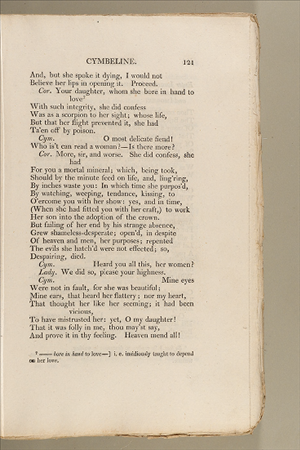 CYMBELINE. 121
And, but she spoke it dying, I would not
Believe her lips in opening it. Proceed.
Cor. Your daughter, whom she bore in hand to
love
With such integrity, she did confess
Was as a scorpion to her sight; whose life,
But that her flight prevented it, she had
Ta'en off by poison.
Cym. O most delicate fiend!
Who is't can read a woman?—Is there more?
Cor. More, sir, and worse. She did confess, she
had
For you a mortal mineral; which, being took,
Should by the minute feed on life, and, ling'ring,
By inches waste you: In which time she purpos'd,
By watching, weeping, tendance, kissing, to
O'ercome you with her show: yes, and in time,
(When she had fitted you with her craft,) to work
Her son into the adoption of the crown.
But failing of her end by his strange absence,
Grew shameless-desperate; open'd, in despite
Of heaven and men, her purposes; repented
The evils she hatch'd were not effected; so,
Despairing, died.
Cym. Heard you all this, her women?
Lady. We did so, please your highness.
Cym. Mine eyes
Were not in fault, for she was beautiful;
Mine ears, that heard her flattery; nor my heart,
That thought her like her seeming; it had been
vicious,
To have mistrusted her: yet, O my daughter!
That it was folly in me, thou may'st say,
And prove it in thy feeling. Heaven mend all!
—— bore in hand to love—] i. e. insidiously taught to depend
on her love.